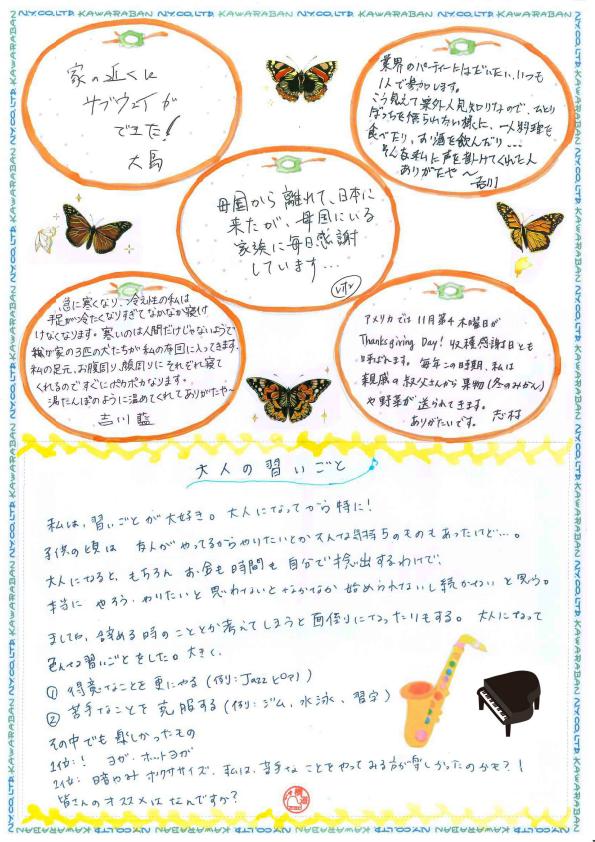 家の近くに
サブウェイが
できた!
大島
業界のパーティーにはだいたい、いつも
1人で参加します。
こう見えて案外人見知りなので、ひとり
ぼっちを悟られない様に、一人料理を
食べたり、お酒を飲んだり…
そんな私に声を掛けてくれた人
ありがたや〜
母国から離れて、日本に
来たが、母国にいる
家族に毎日感謝
しています…
急に寒くなり、冷え性の私は
手足が冷たくなりすぎてなかなか寝け
けなくなります。寒いのは人間だけじゃないようで
我が家の3匹の犬たちが私の布団に入ってきます。
私の足元、お腹回り、腕回りにそれぞれ寝て
くれるのですぐにポカポカなります。
湯たんぽのように温めてくれてありがたや〜
吉川 藍
アメリカでは11月第4木曜日が
Thanksgiving Day! 収穫感謝日とも
呼ばれます。毎年この時期、私は
親戚の叔父さんから果物(冬のみかん)
や野菜が送られてきます。
ありがたいです。 志村
大人の習いごと
私は、習いごとが大好き。大人になってから特に!
子供の頃は 友人がやってるからやりたいとかそんな気持ちのものもあったけど…。
大人になると、もちろん お金も時間も自分で捻出するわけで、
本当に やろう、やりたいと思わないとなかなか始められないし続かないと思う。
ましてや、辞める時のこととか考えてしまうと面倒りになったりもする。大人になって
色んな習いごとをした。大きく、
① 得意なことを更にやる(例:Jazzピアノ)
② 苦手なことを克服する(例:ジム、水泳、習字)
その中でも楽しかったもの
1位:! ヨガ・ホットヨガ
2位: 暗やみボクササイズ. 私は、苦手なことをやってみる方が楽しかったのかも?!
皆さんのオススメはなんですか?
N.Y.CO.,LTD. KAWARABAN